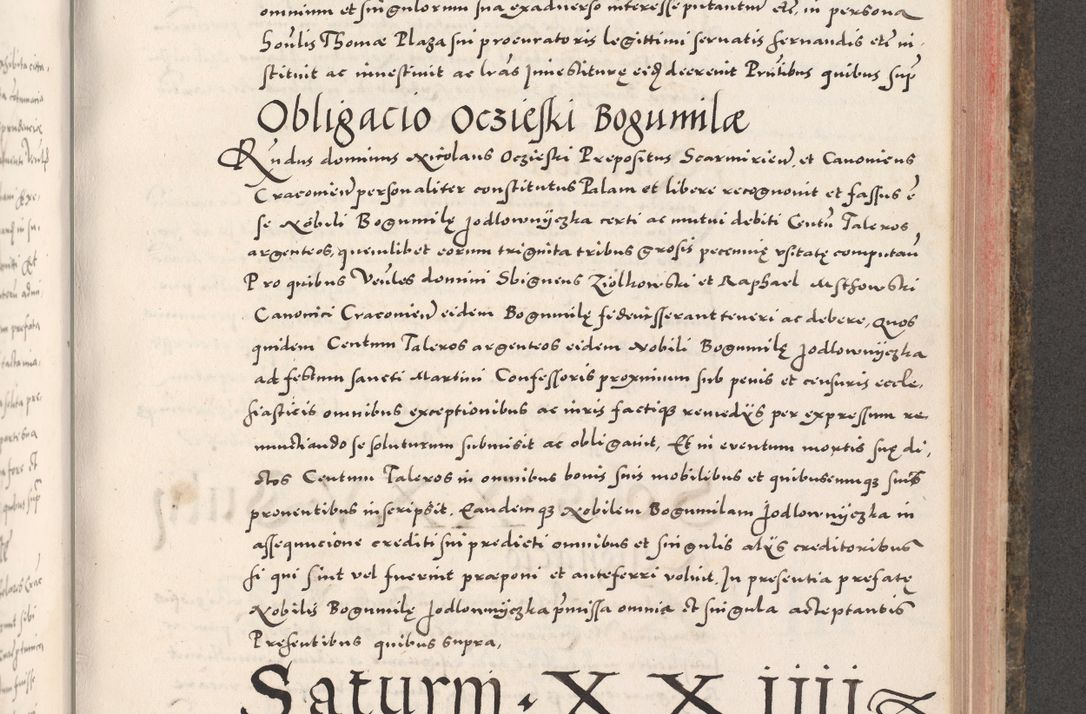 omnium et singulorum sua exadverso interesse putantium etc, in persona
hoūlis Thomæ Plaza sui procuratoris legittimi servatis servandis etc in-
stituit ac investivit ac lrās Investiturę eiꝫ decrevit Pnñtibus quibus supᷓ
Obligacio Oczieſki Bogumilæ
Rndus dominus Nicolaus Oczieſki Prepositus Scarmirieñ, et Canonicus
Cracovieñ personaliter constitutus Palam et libere recognovit et fassus ē
se Nobili Bogumilę Jodlownyczka certi ac mutui debiti Centū Taleros
argenteos, quemlibet eorum triginta tribus grosis pecunię usitatę computañ
Pro quibus Veñles domini Sbigneus Ziolkowski et Raphael Msthowski
Canonici Cracovieñ eidem Bogumilę fideiusserant teneri ac debere, Quos
quidem Centum Taleros argenteos eidem Nobili Bogumilę Jodlownyczka
ad festum sancti Martini Confessoris proximum sub penis et censuris eccle-
siasticis omnibus exceptionibus ac iuris factique remedijs per expressum re-
nunctiando se soluturum submisit ac obligavit, Et in eventum mortis suę di-
ctos Centum Taleros in omnibus bonis suis mobilibus et quibuscumque suis
proventibus inscripsit, Eandemque Nobilem Bogumilam Jodlownyczka in
assequucione crediti sui predicti omnibus et singulis alijs creditoribus
si qui sint vel fuerint præponi et anteferri voluit, In presentia prefatę
Nobilis Bogumilę Jodlownyczka pr̄missa omnia et singula acceptantis
Presentibus quibus supra,
Saturni · XXIIII